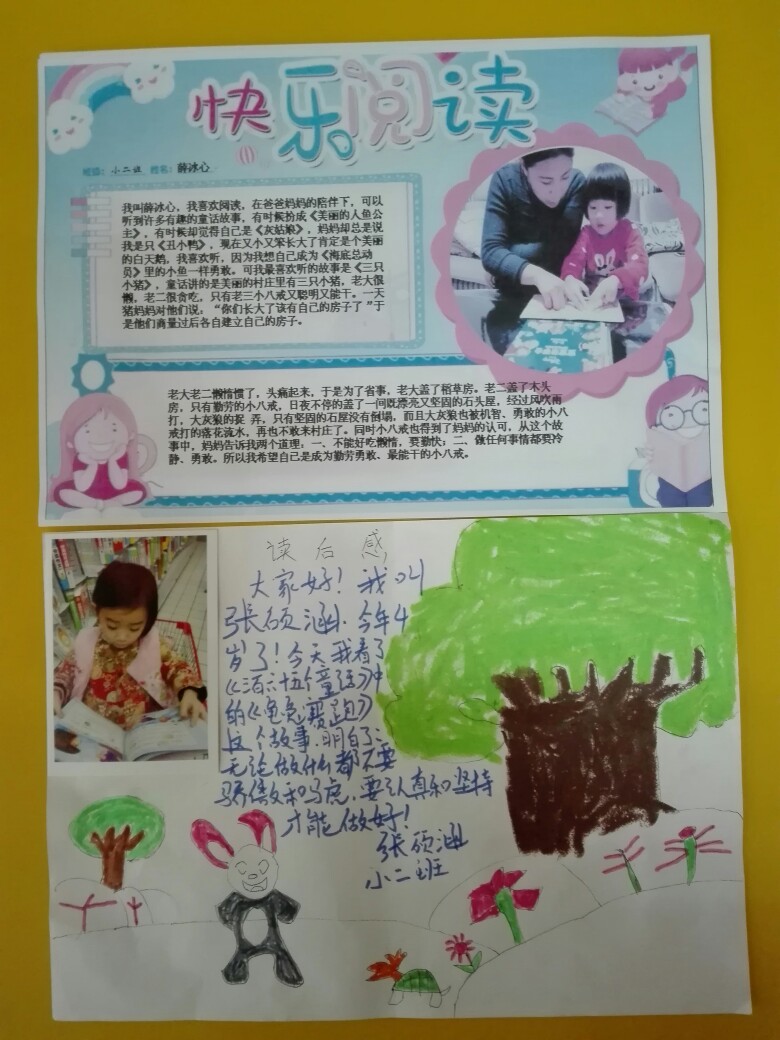 快乐阅读
班级：小二班 姓名：薛冰心
我叫薛冰心，我喜欢阅读，在爸爸妈妈的陪伴下，可以
听到许多有趣的童话故事，有时候扮成《美丽的人鱼公
主》，有时候却觉得自己是《灰姑娘》，妈妈却总是说
我是只《丑小鸭》，现在又小又笨长大了肯定是个美丽
的白天鹅。我喜欢听，因为我想自己成为《海底总动
员》里的小鱼一样勇敢。可我最喜欢听的故事是《三只
小猪》，童话讲的是美丽的村庄里有三只小猪，老大很
懒，老二很贪吃，只有老三小八戒又聪明又能干。一天
猪妈妈对他们说：“你们长大了该有自己的房子了”于
是他们商量过后各自建立自己的房子。
老大老二懒惰惯了，头痛起来，于是为了省事，老大盖了稻草房。老二盖了木头
房，只有勤劳的小八戒，日夜不停的盖了一间既漂亮又坚固的石头屋，经过风吹雨
打，大灰狼的捉 弄，只有坚固的石屋没有倒塌，而且大灰狼也被机智、勇敢的小八
戒打的落花流水，再也不敢来村庄了。同时小八戒也得到了妈妈的认可，从这个故
事中，妈妈告诉我两个道理：一、不能好吃懒惰，要勤快；二、做任何事情都要冷
静、勇敢。所以我希望自己是成为勤劳勇敢、最能干的小八戒。
读后感
大家好！我叫
张硕涵，今年4
岁了！今天我看了
《三百六十五个童话》中
的《龟兔赛跑》
这个故事，明白了：
无论做什么都不要
骄傲和马虎，要认真和坚持
才能做好！
张硕涵
小二班